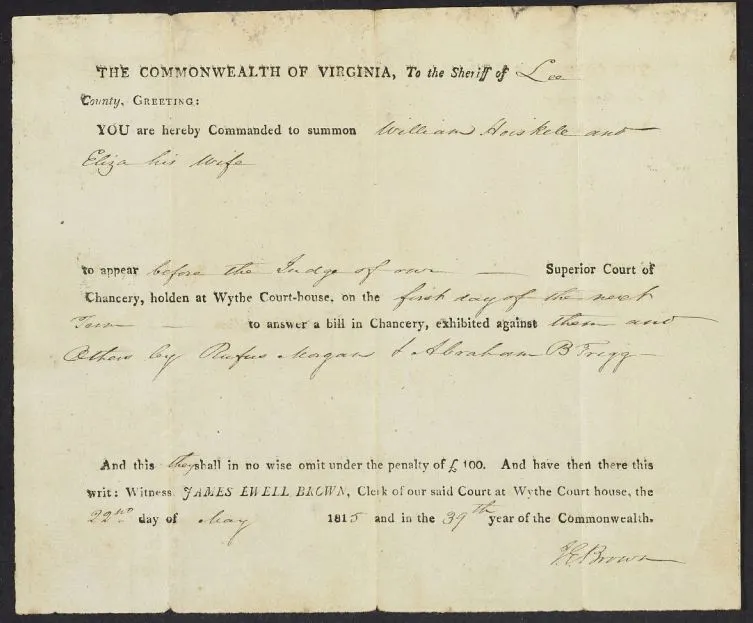 THE COMMONWEALTH OF VIRGINIA, To the Sheriff of Lee
County, GREETING:
YOU are hereby Commanded to summon William Heiskele and
Eliza his Wife
to appear before the Judge of our — Superior Court of
Chancery, holden at Wythe Court-house, on the first day of the next
Term — to answer a bill in Chancery, exhibited against them and
Others by Rufus Morgan & Abraham B Trigg
And this they shall in no wise omit under the penalty of £100. And have then there this
writ: Witness JAMES EWELL BROWN, Clerk of our said Court at Wythe Court house, the
22nd day of May 1815 and in the 39th year of the Commonwealth.
J.E. Brown